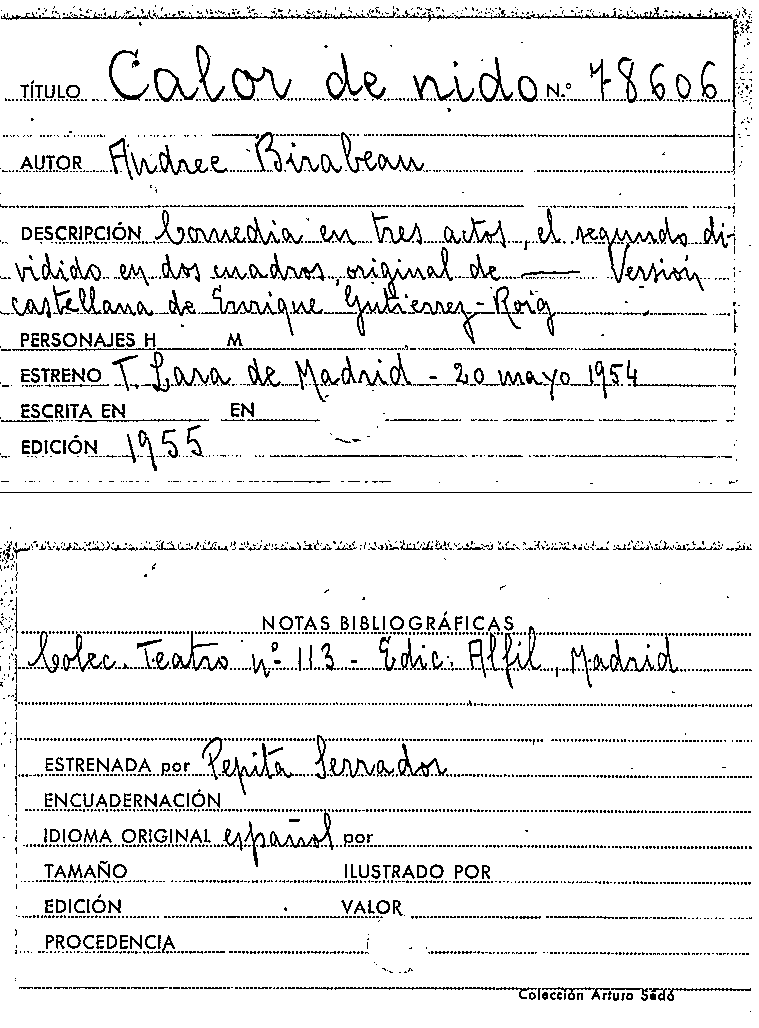 TÍTULO Calor de nido N.º 78606
AUTOR Andree Birabeau
DESCRIPCIÓN Comedia en tres actos, el segundo di-
vidido en dos cuadros, original de — Versión
castellana de Enrique Gutierrez-Roig
PERSONAJES H M
ESTRENO T. Lara de Madrid - 20 mayo 1954
ESCRITA EN EN
EDICIÓN 1955
NOTAS BIBLIOGRÁFICAS
Colec. Teatro nº 113 - Edic. Alfil, Madrid
ESTRENADA por Pepita Serrador
ENCUADERNACIÓN
IDIOMA ORIGINAL español por
TAMAÑO ILUSTRADO POR
EDICIÓN VALOR
PROCEDENCIA
Colección Arturo Sedó